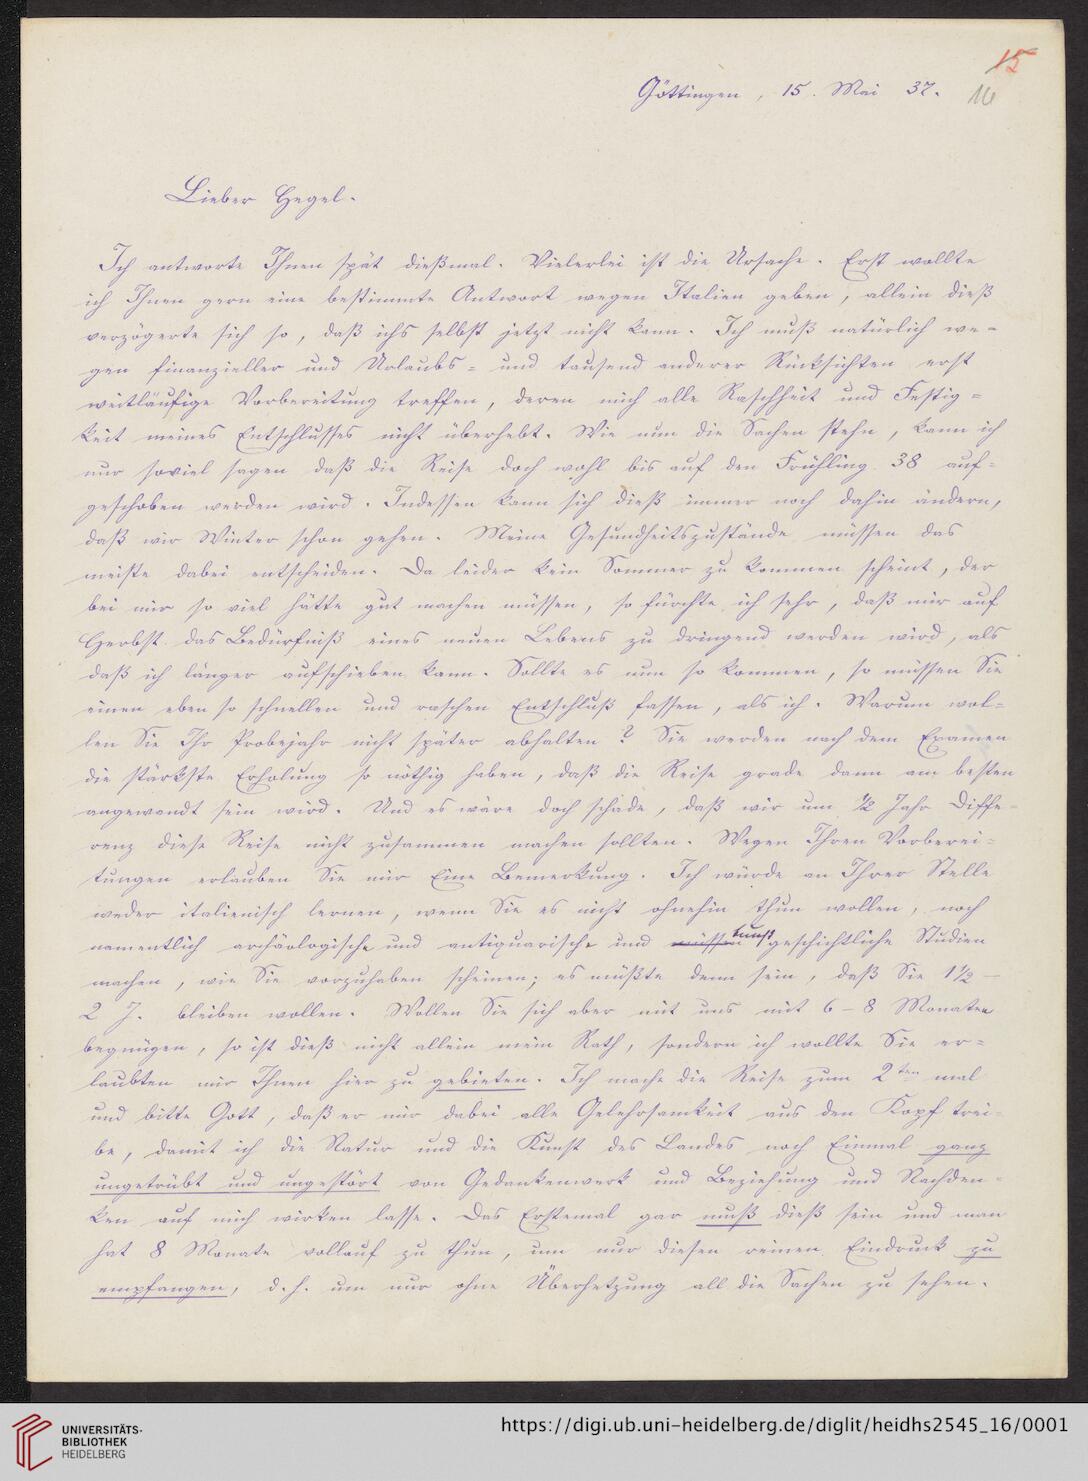 15
Göttingen, 15. Mai 37. 16
Lieber Hegel.
Ich antworte Ihnen spät dießmal. Vielerlei ist die Ursache. Erst wollte
ich Ihnen gern eine bestimmte Antwort wegen Italien geben, allein dieß
verzögerte sich so, daß ichs selbst jetzt nicht kann. Ich muß natürlich we-
gen finanzieller und Urlaubs- und tausend anderer Rücksichten erst
weitläufige Vorbereitung treffen, deren mich alle Raschheit und Festig-
keit meines Entschlusses nicht überhebt. Wie nun die Sachen stehn, kann ich
nur soviel sagen daß die Reise doch wohl bis auf den Frühling 38 auf-
geschoben werden wird. Indessen kann sich dieß immer noch dahin ändern,
daß wir Winter schon gehen. Meine Gesundheitszustände müssen das
meiste dabei entscheiden. Da leider kein Sommer zu kommen scheint, der
bei mir so viel hätte gut machen müssen, so fürchte ich sehr, daß mir auf
Herbst das Bedürfniß eines neuen Lebens zu dringend werden wird, als
daß ich länger aufschieben kann. Sollte es nun so kommen, so müssen Sie
einen eben so schnellen und raschen Entschluß fassen, als ich. Warum wol-
len Sie Ihr Probejahr nicht später abhalten? Sie werden nach dem Examen
die stärkste Erholung so nöthig haben, daß die Reise grade dann am besten
angewandt sein wird. Und es wäre doch schade, daß wir um ½ Jahr Diffe-
renz diese Reise nicht zusammen machen sollten. Wegen Ihren Vorberei-
tungen erlauben Sie mir Eine Bemerkung. Ich würde an Ihrer Stelle
weder italienisch lernen, wenn Sie es nicht ohnehin thun wollen, noch
namentlich archäologische und antiquarische und müssen kunstgeschichtliche Studien
machen, wie Sie vorzuhaben scheinen; es müßte denn sein, daß Sie 1½ –
2 J. bleiben wollen. Wollen Sie sich aber mit uns mit 6 – 8 Monaten
begnügen, so ist dieß nicht allein mein Rath, sondern ich wollte Sie er-
laubten mir Ihnen hier zu gebieten. Ich mache die Reise zum 2ten mal
und bitte Gott, daß er mir dabei alle Gelehrsamkeit aus dem Kopf trei-
be, damit ich die Natur und die Kunst des Landes noch Einmal ganz
ungetrübt und ungestört von Gedankenwerk und Beziehung und Nachden-
ken auf mich wirken lasse. Das Erstemal gar muß dieß sein und man
hat 8 Monate vollauf zu thun, um nur diesen reinen Eindruck zu
empfangen, d.h. um nur ohne Überhetzung all die Sachen zu sehen.
UNIVERSITÄTS-
BIBLIOTHEK
HEIDELBERG
https://digi.ub.uni-heidelberg.de/diglit/heidhs2545_16/0001